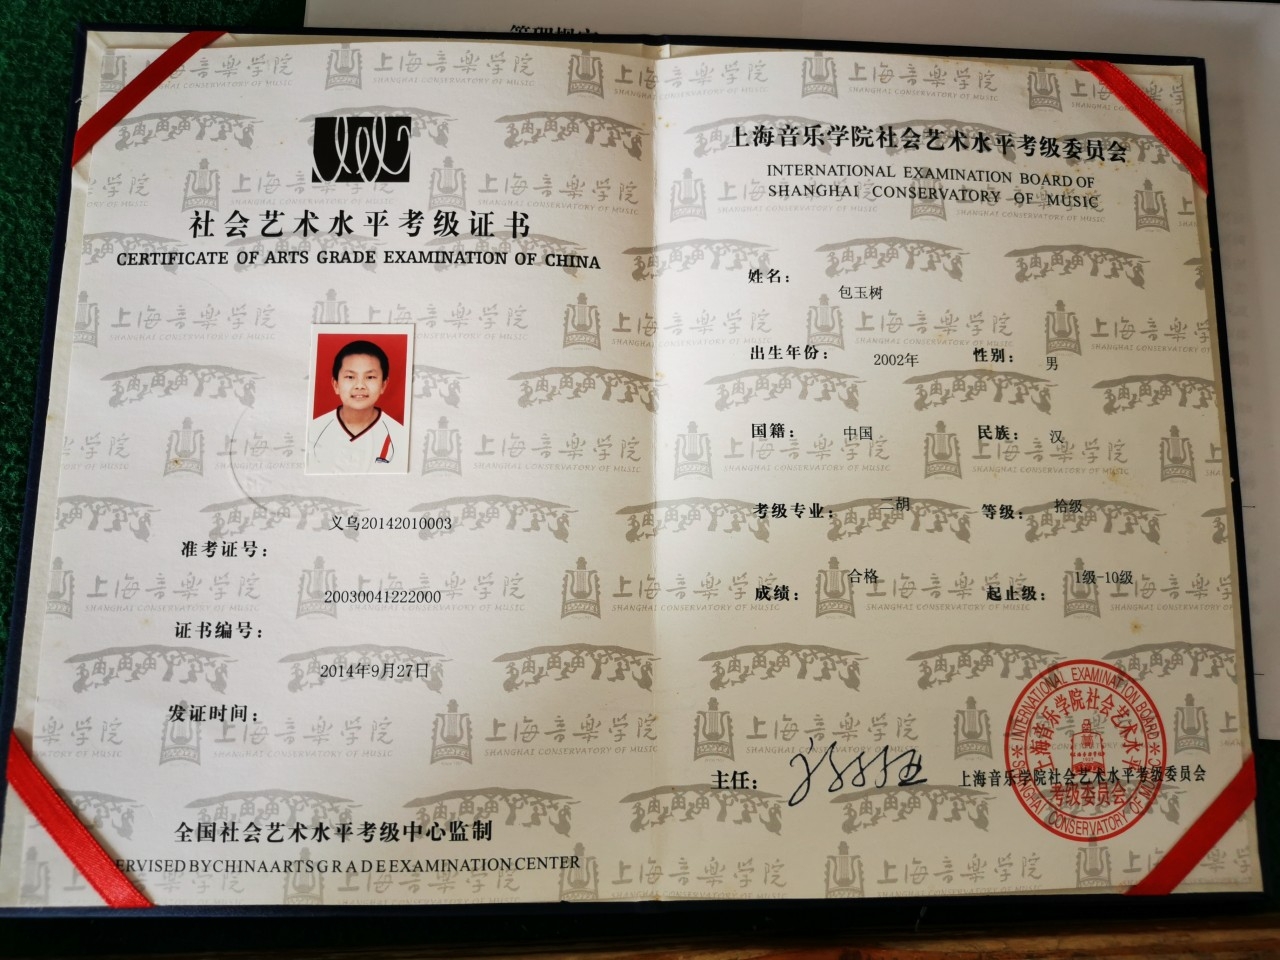 社会艺术水平考级证书
CERTIFICATE OF ARTS GRADE EXAMINATION OF CHINA
义乌20142010003
准考证号：
20030041222000
证书编号：
2014年9月27日
发证时间：
全国社会艺术水平考级中心监制
ERVISED BY CHINA ARTS GRADE EXAMINATION CENTER
上海音乐学院社会艺术水平考级委员会
INTERNATIONAL EXAMINATION BOARD OF
SHANGHAI CONSERVATORY OF MUSIC
姓名：
包玉树
出生年份： 2002年 性别： 男
国籍： 中国 民族： 汉
考级专业： 二胡 等级： 拾级
成绩： 合格 起止级： 1级-10级
主任：
上海音乐学院社会艺术水平考级委员会
INTERNATIONAL EXAMINATION BOARD
SHANGHAI CONSERVATORY OF MUSIC
上海音乐学院社会艺术水平
考级委员会
上海音樂学院
SHANGHAI CONSERVATORY OF MUSIC